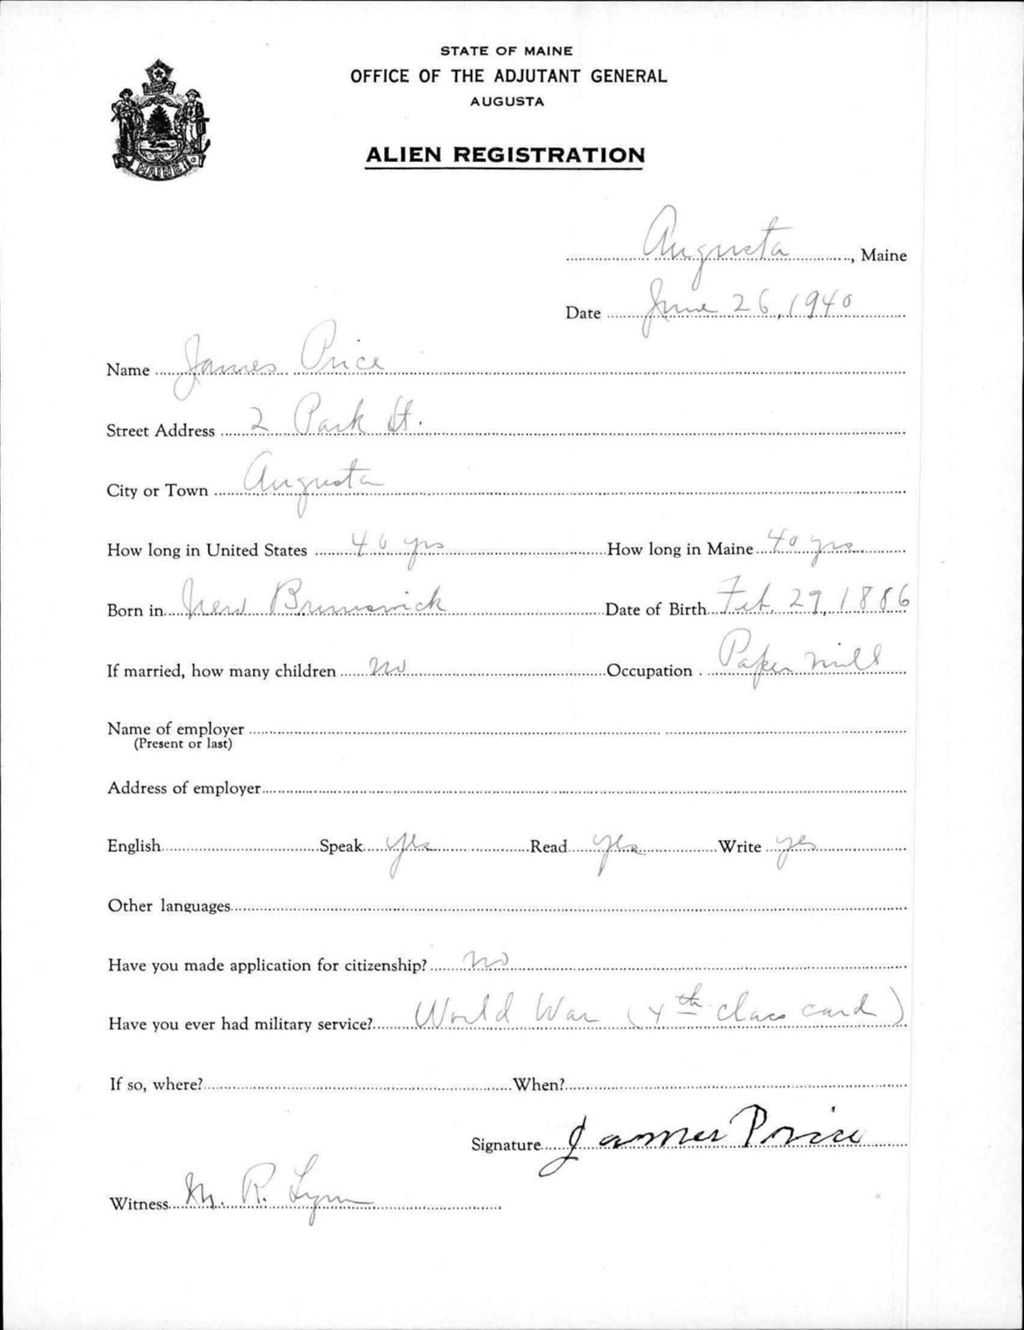 STATE OF MAINE
OFFICE OF THE ADJUTANT GENERAL
AUGUSTA
ALIEN REGISTRATION
MAINE
Augusta, Maine
Date June 26, 1940
Name James Price
Street Address 2 Park St.
City or Town Augusta
How long in United States 40 yrs How long in Maine 40 yrs
Born in New Brunswick Date of Birth Feb. 29, 1886
If married, how many children No Occupation Paper mill
Name of employer
(Present or last)
Address of employer
English Speak yes Read yes Write yes
Other languages
Have you made application for citizenship? No
Have you ever had military service? World War (4th class card)
If so, where? When?
Signature James Price
Witness M. R. Lynn